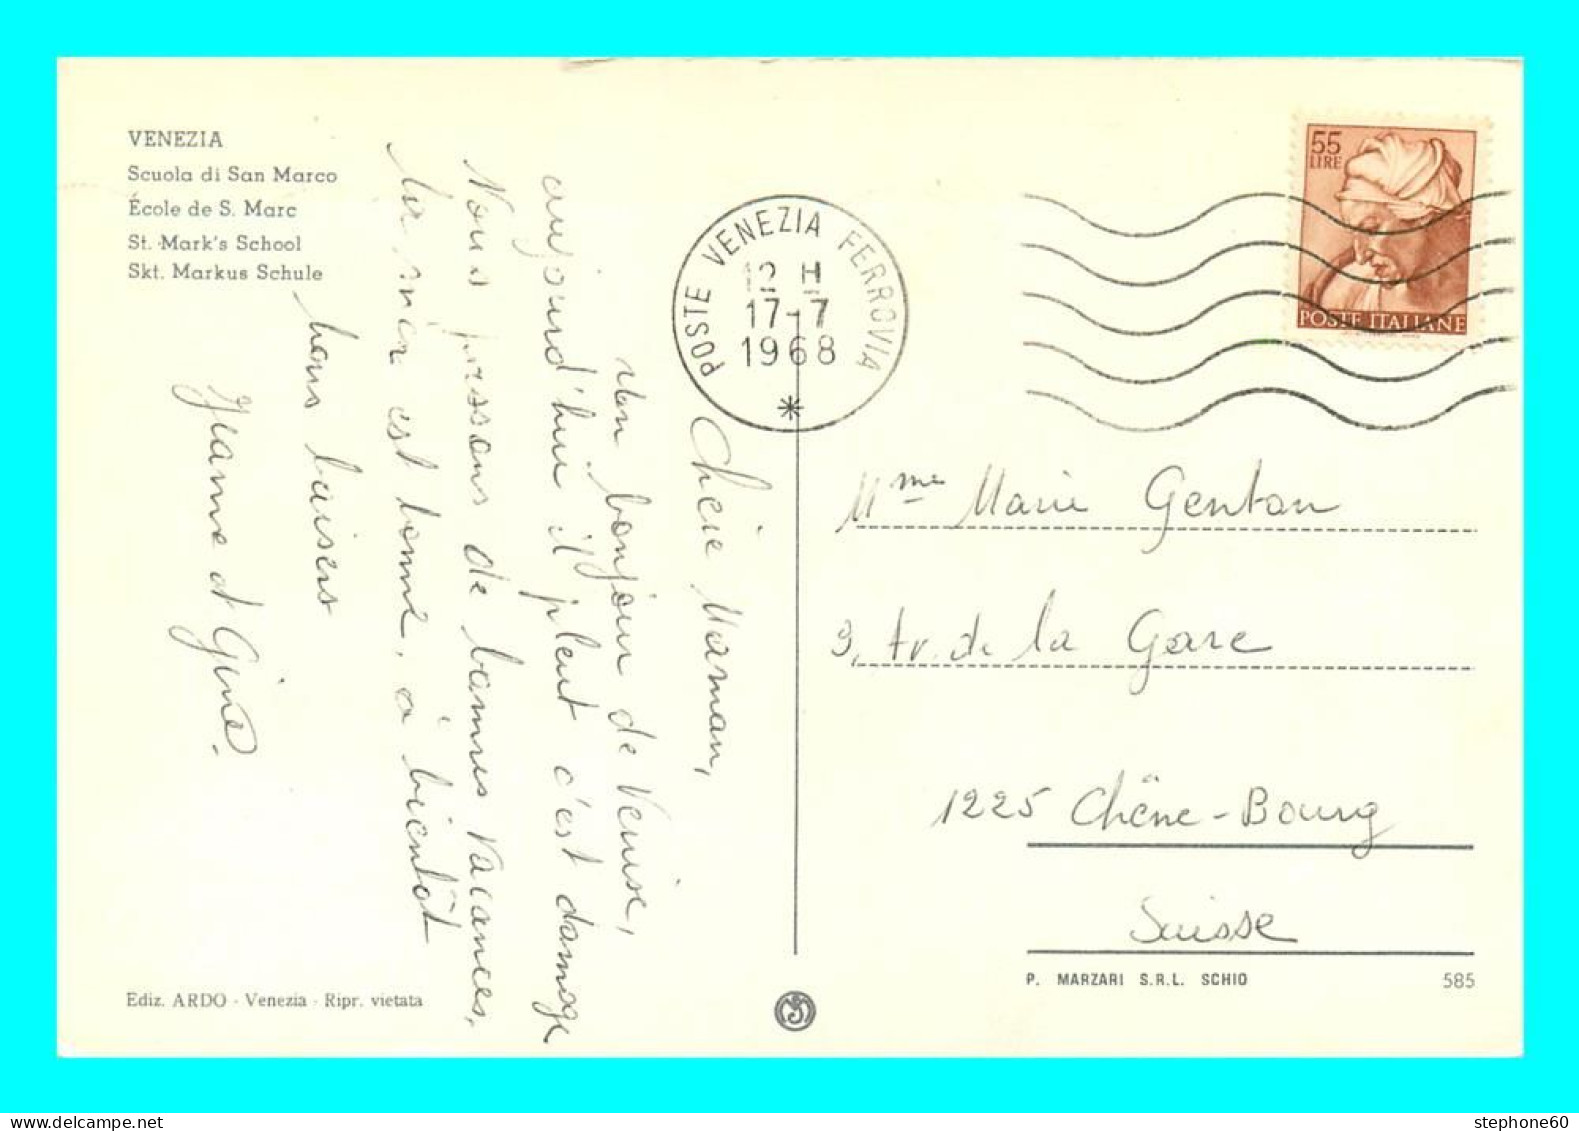 VENEZIA
Scuola di San Marco
École de S. Marc
St. Mark's School
Skt. Markus Schule
POSTE VENEZIA FERROVIA
12 H
17-7
1968
55
LIRE
POSTE ITALIANE
Chère Maman,
Un bonjour de Venise,
aujourd'hui il pleut c'est damage
Nous passons de bonnes vacances,
la mer est bonne, à bientôt
bons baisers
Jeanne et Géné.
Mme Marie Genton
9, Av. de la Gare
1225 Chêne-Bourg
Suisse
P. MARZARI S.R.L. SCHIO
585
Ediz. ARDO - Venezia - Ripr. vietata
stephone60